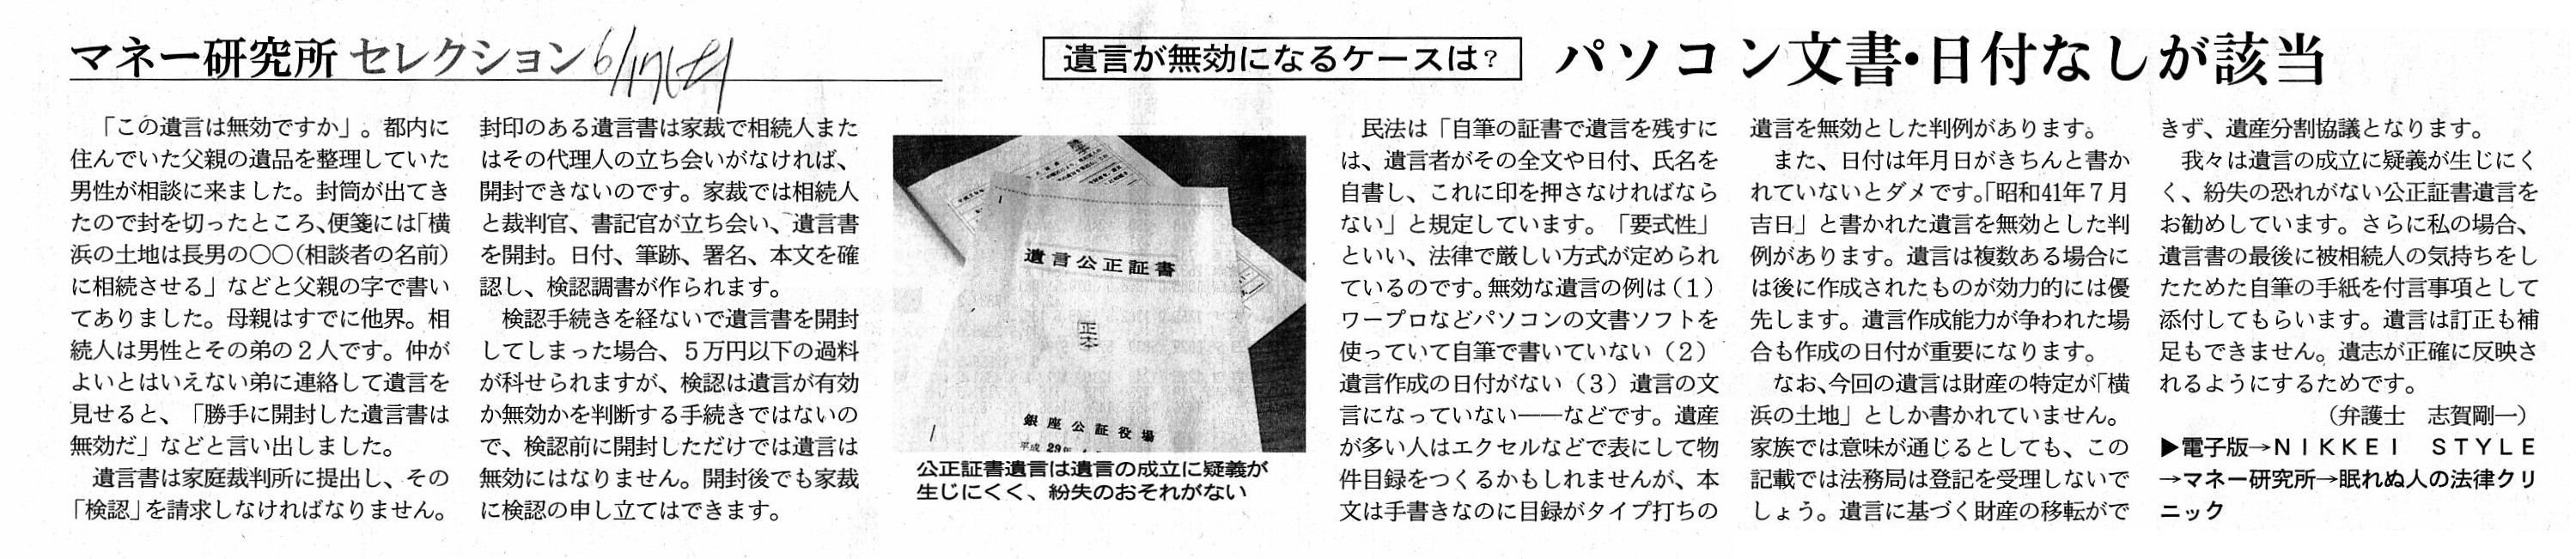 マネー研究所 セレクション 6/17(土)
遺言が無効になるケースは?
パソコン文書・日付なしが該当
「この遺言は無効ですか」。都内に
住んでいた父親の遺品を整理していた
男性が相談に来ました。封筒が出てき
たので封を切ったところ、便箋には「横
浜の土地は長男の〇〇(相談者の名前)
に相続させる」などと父親の字で書い
てありました。母親はすでに他界。相
続人は男性とその弟の2人です。仲が
よいとはいえない弟に連絡して遺言を
見せると、「勝手に開封した遺言書は
無効だ」などと言い出しました。
遺言書は家庭裁判所に提出し、その
「検認」を請求しなければなりません。
封印のある遺言書は家裁で相続人また
はその代理人の立ち会いがなければ、
開封できないのです。家裁では相続人
と裁判官、書記官が立ち会い、遺言書
を開封。日付、筆跡、署名、本文を確
認し、検認調書が作られます。
検認手続きを経ないで遺言書を開封
してしまった場合、5万円以下の過料
が科せられますが、検認は遺言が有効
か無効かを判断する手続きではないの
で、検認前に開封しただけでは遺言は
無効にはなりません。開封後でも家裁
に検認の申し立てはできます。
遺言公正証書
正本
銀座公証役場
平成 29年
公正証書遺言は遺言の成立に疑義が
生じにくく、紛失のおそれがない
民法は「自筆の証書で遺言を残すに
は、遺言者がその全文や日付、氏名を
自書し、これに印を押さなければなら
ない」と規定しています。「要式性」
といい、法律で厳しい方式が定められ
ているのです。無効な遺言の例は(1)
ワープロなどパソコンの文書ソフトを
使っていて自筆で書いていない(2)
遺言作成の日付がない(3)遺言の文
言になっていない――などです。遺産
が多い人はエクセルなどで表にして物
件目録をつくるかもしれませんが、本
文は手書きなのに目録がタイプ打ちの
遺言を無効とした判例があります。
また、日付は年月日がきちんと書か
れていないとダメです。「昭和41年7月
吉日」と書かれた遺言を無効とした判
例があります。遺言は複数ある場合に
は後に作成されたものが効力的には優
先します。遺言作成能力が争われた場
合も作成の日付が重要になります。
なお、今回の遺言は財産の特定が「横
浜の土地」としか書かれていません。
家族では意味が通じるとしても、この
記載では法務局は登記を受理しないで
しょう。遺言に基づく財産の移転がで
きず、遺産分割協議となります。
我々は遺言の成立に疑義が生じにく
く、紛失の恐れがない公正証書遺言を
お勧めしています。さらに私の場合、
遺言書の最後に被相続人の気持ちをし
たためた自筆の手紙を付言事項として
添付してもらいます。遺言は訂正も補
足もできません。遺志が正確に反映さ
れるようにするためです。
(弁護士 志賀剛一)
▶電子版→NIKKEI STYLE
→マネー研究所→眠れぬ人の法律クリ
ニック